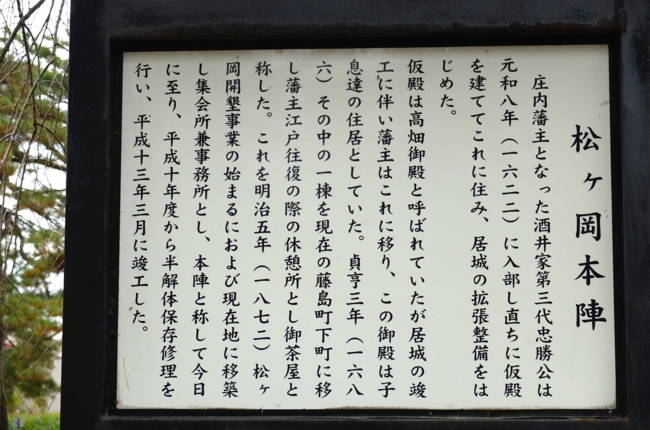 松ヶ岡本陣
庄内藩主となった酒井家第三代忠勝公は
元和八年（一六二二）に入部し直ちに仮殿
を建ててこれに住み、居城の拡張整備をは
じめた。
仮殿は高畑御殿と呼ばれていたが居城の竣
工に伴い藩主はこれに移り、この御殿は子
息達の住居としていた。貞亨三年（一六八
六）その中の一棟を現在の藤島町下町に移
し藩主江戸往復の際の休憩所とし御茶屋と
称した。これを明治五年（一八七二）松ヶ
岡開墾事業の始まるにおよび現在地に移築
し集会所兼事務所とし、本陣と称して今日
に至り、平成十年度から半解体保存修理を
行い、平成十三年三月に竣工した。